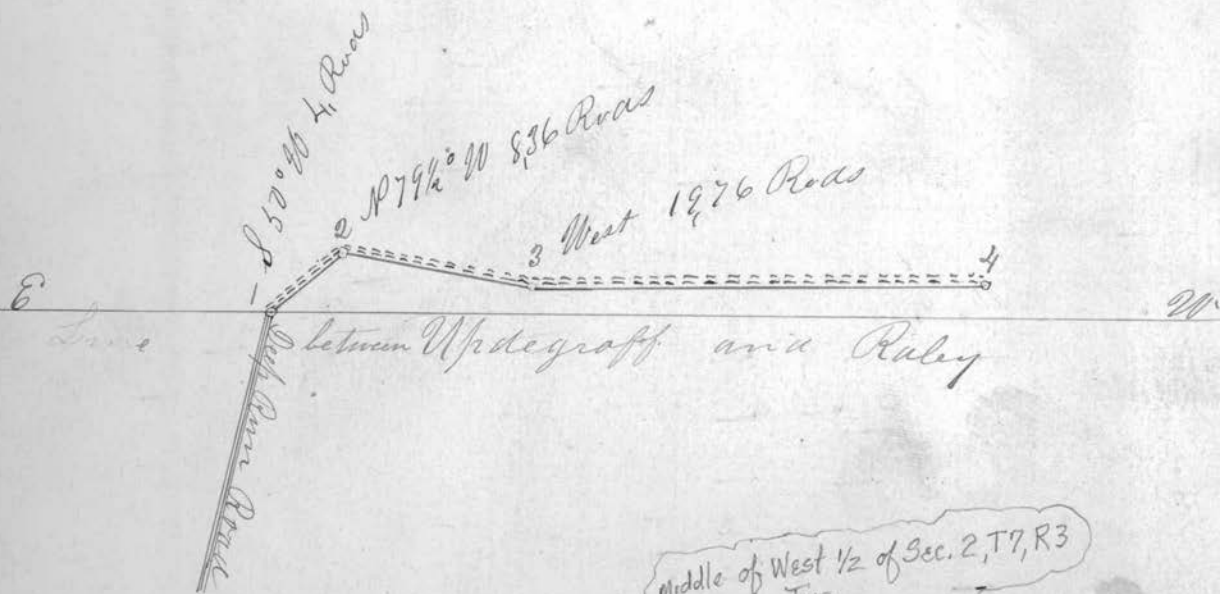 S 50° W 4, Rods
N 79½° W 8,36 Rods
West 19,76 Rods
1
2
3
4
E
W
Line between Updegraff and Raley
Deep Run Road
Middle of West ½ of Sec. 2, T7, R3